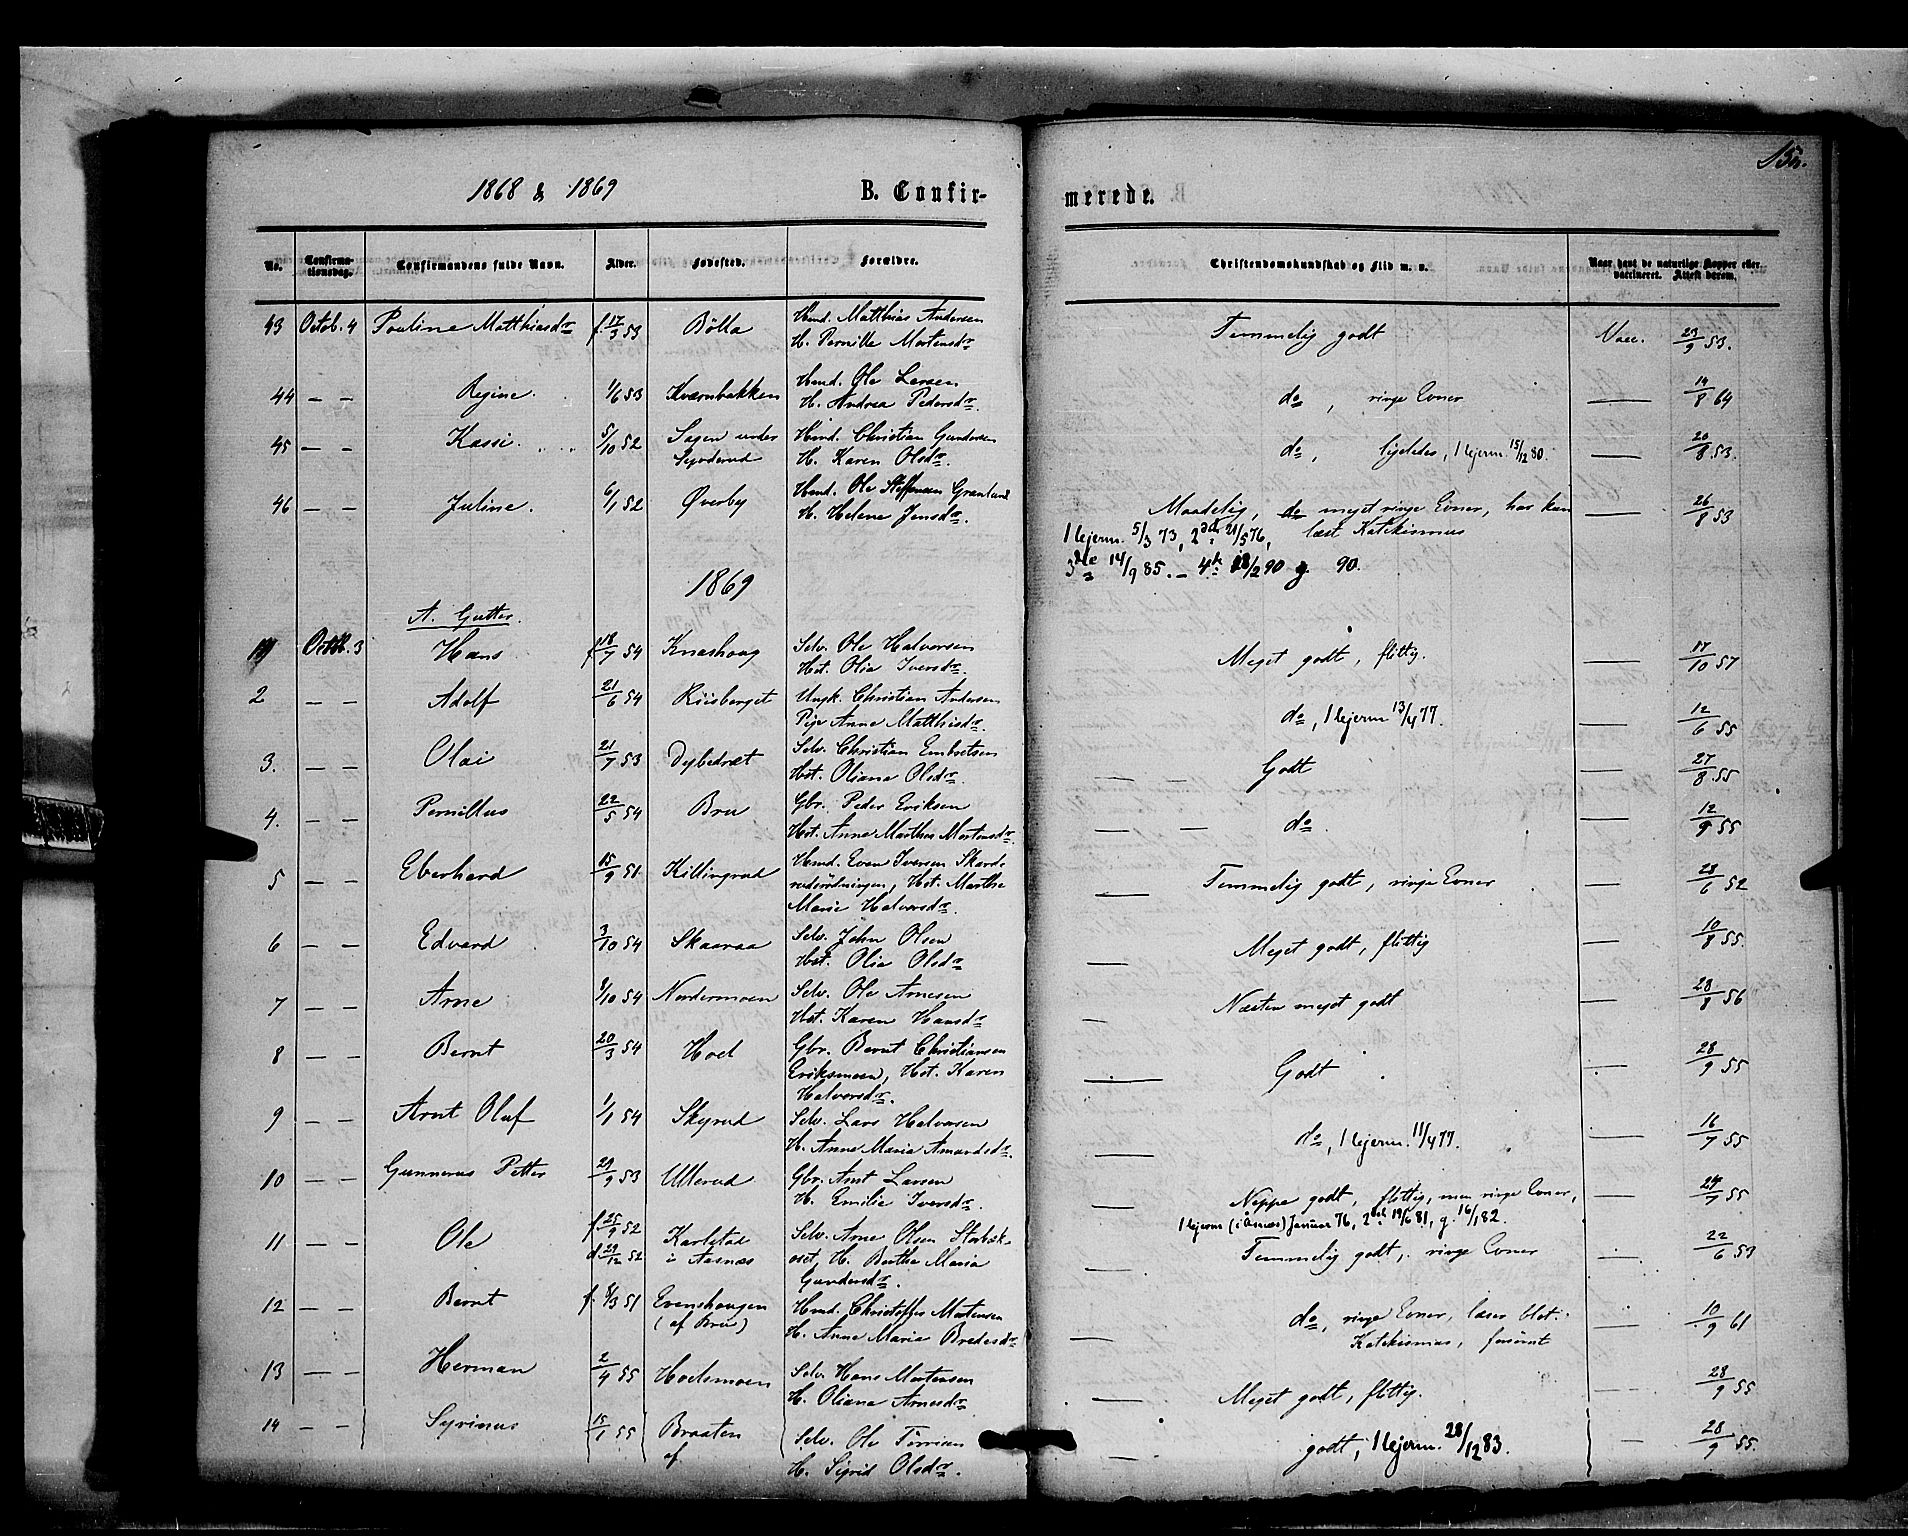 1868 & 1869
B. Confir-
merede.
No. Confirma-tionsdag. Confirmandens fulde Navn. Alder. Fødested. Forældre. Christendomskundskab og Flid m. v. Naar havt de naturlige Kopper eller vaccineret. Attest derom.
43 Octob. 4 Pauline Matthiasdr f. 17/3 53 Bölla Hmd. Matthias Andersen Temmelig godt Vacc. 23/9 53.
H. Pernille Mortensdr
44 — — Regine. 1/6 53 Kværnbakken Hmd. Ole Larsen do, ringe Evner — 14/8 64
H. Andrea Pedersdr.
45 — — Kassi. 5/10 52 Sagen under Hmd. Christian Gundersen do, ligeledes, 1 lejerm. 15/12 80. — 20/8 53.
H. Karen Olsdr.
46 — — Juline. 6/1 52 Øverby Hmd. Ole Steffensen Granlund Maadelig, do meget ringe Evner, har kun — 26/8 53
H. Helene Jensdr. læst Katekismus
1 lejerm. 5/3 73, 2det 21/5 76,
3die 14/9 85. — 4de 28/2 90 g. 90.
1869
A. Gutter.
1 Octbr. 3 Hans f. 18/7 54 Knashoug Selv. Ole Halvorsen Meget godt, flittig. — 17/10 57
Hst. Olia Iversdr.
2 — — Adolf 21/6 54 Riisberget Ungk. Christian Andersen do, 1 lejerm 13/4 77. — 12/6 55
Pige Anne Matthisdr.
3. — — Olai 21/7 53 Dybedræt Selv. Christian Embretsen Godt — 27/8 55
Hst. Oliana Olsdr.
4. — — Pernillus 22/5 54 Bru Gbr. Peder Eriksen do. 12/9 55
Hst. Anne Marthea Mortensdr.
5 — — Eberhard 15/9 51 Killingrud Hmd. Even Iversen Skard- Temmelig godt, ringe Evner — 28/6 52
Hst. Marthe
Marie Halvorsdr.
6 — — Edvard 3/10 54 Skaaraa Selv. John Olsen Meget godt, flittig — 10/8 55.
Hst. Olia Olsdr
7 — — Arne 8/10 54 Nordermoen Selv. Ole Arnesen Næsten meget godt — 28/8 56
Hst. Karen Hansdr
8 — — Bernt 20/3 54 Hoel Gbr. Bernt Christiansen Godt — 28/9 55
Eriksmoen, Hst. Karen
Halvorsdr.
9 — — Arnt Oluf 1/1 54 Skyrud Selv. Lars Halvorsen do, 1 lejerm. 11/4 77. — 16/7 55
H. Anne Maria Amundsdr.
10 — — Gunnerus Petter 29/9 53 Ullerud Gbr. Arnt Larsen Neppe godt, flittig, men ringe Evner, — 24/7 55
H. Emilie Iversdr. 1 lejerm (i Åsnes) Januar 76, 2det 19/6 81, g. 16/1 82.
11 — — Ole f. 25/9 52 Karlstad Selv. Arne Olsen Storbek- Temmelig godt, ringe Evner — 22/6 53
d. 29/12 52 i Aasnes oset, H. Berthe Maria
Gundersdr.
12 — — Bernt f. 8/3 51 Evenshaugen Hmd. Christoffer Mortensen do, ringe Evner, læser blot — 10/9 61
(af Bru) H. Anne Maria Bredesdr Katekismus, forsömt
13 — — Herman 2/4 55 Hoelsmoen Selv. Hans Mortensen Meget godt, flittig. — 28/9 55
H. Oliana Arnesdr
14 — — Syrinus 15/1 55 Braaten Selv. Ole godt, 1 lejerm. 28/12 83. — 28/9 55.
af H. Sigrid Olsdr.